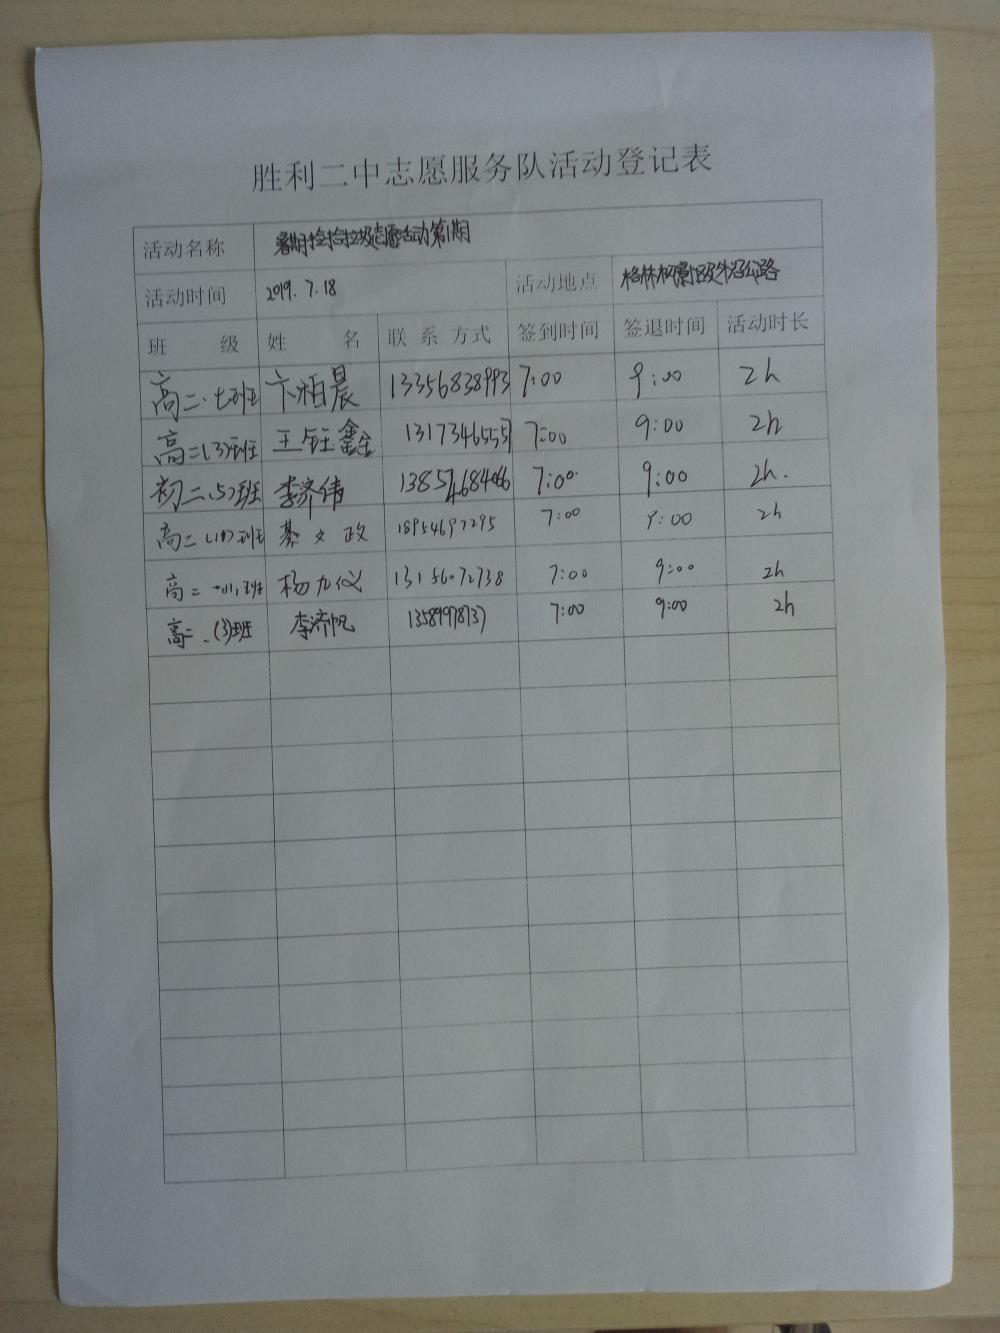 胜利二中志愿服务队活动登记表
活动名称 暑期捡拾垃圾志愿活动第1期
活动时间 2019.7.18 活动地点 格林
班 级 姓 名 联 系 方式 签到时间 签退时间 活动时长
高二.七班 卞柏晨 13356838993 7:00 9:00 2h
高二(3)班 王钰鑫 13173465557 7:00 9:00 2h
初二(5)班 李济伟 7:00 9:00 2h.
高二(10)班 綦文政 18954697295 7:00 9:00 2h
高二 班 杨九仪 13156072738 7:00 9:00 2h
高二.(3)班 李济帆 13589978737 7:00 9:00 2h